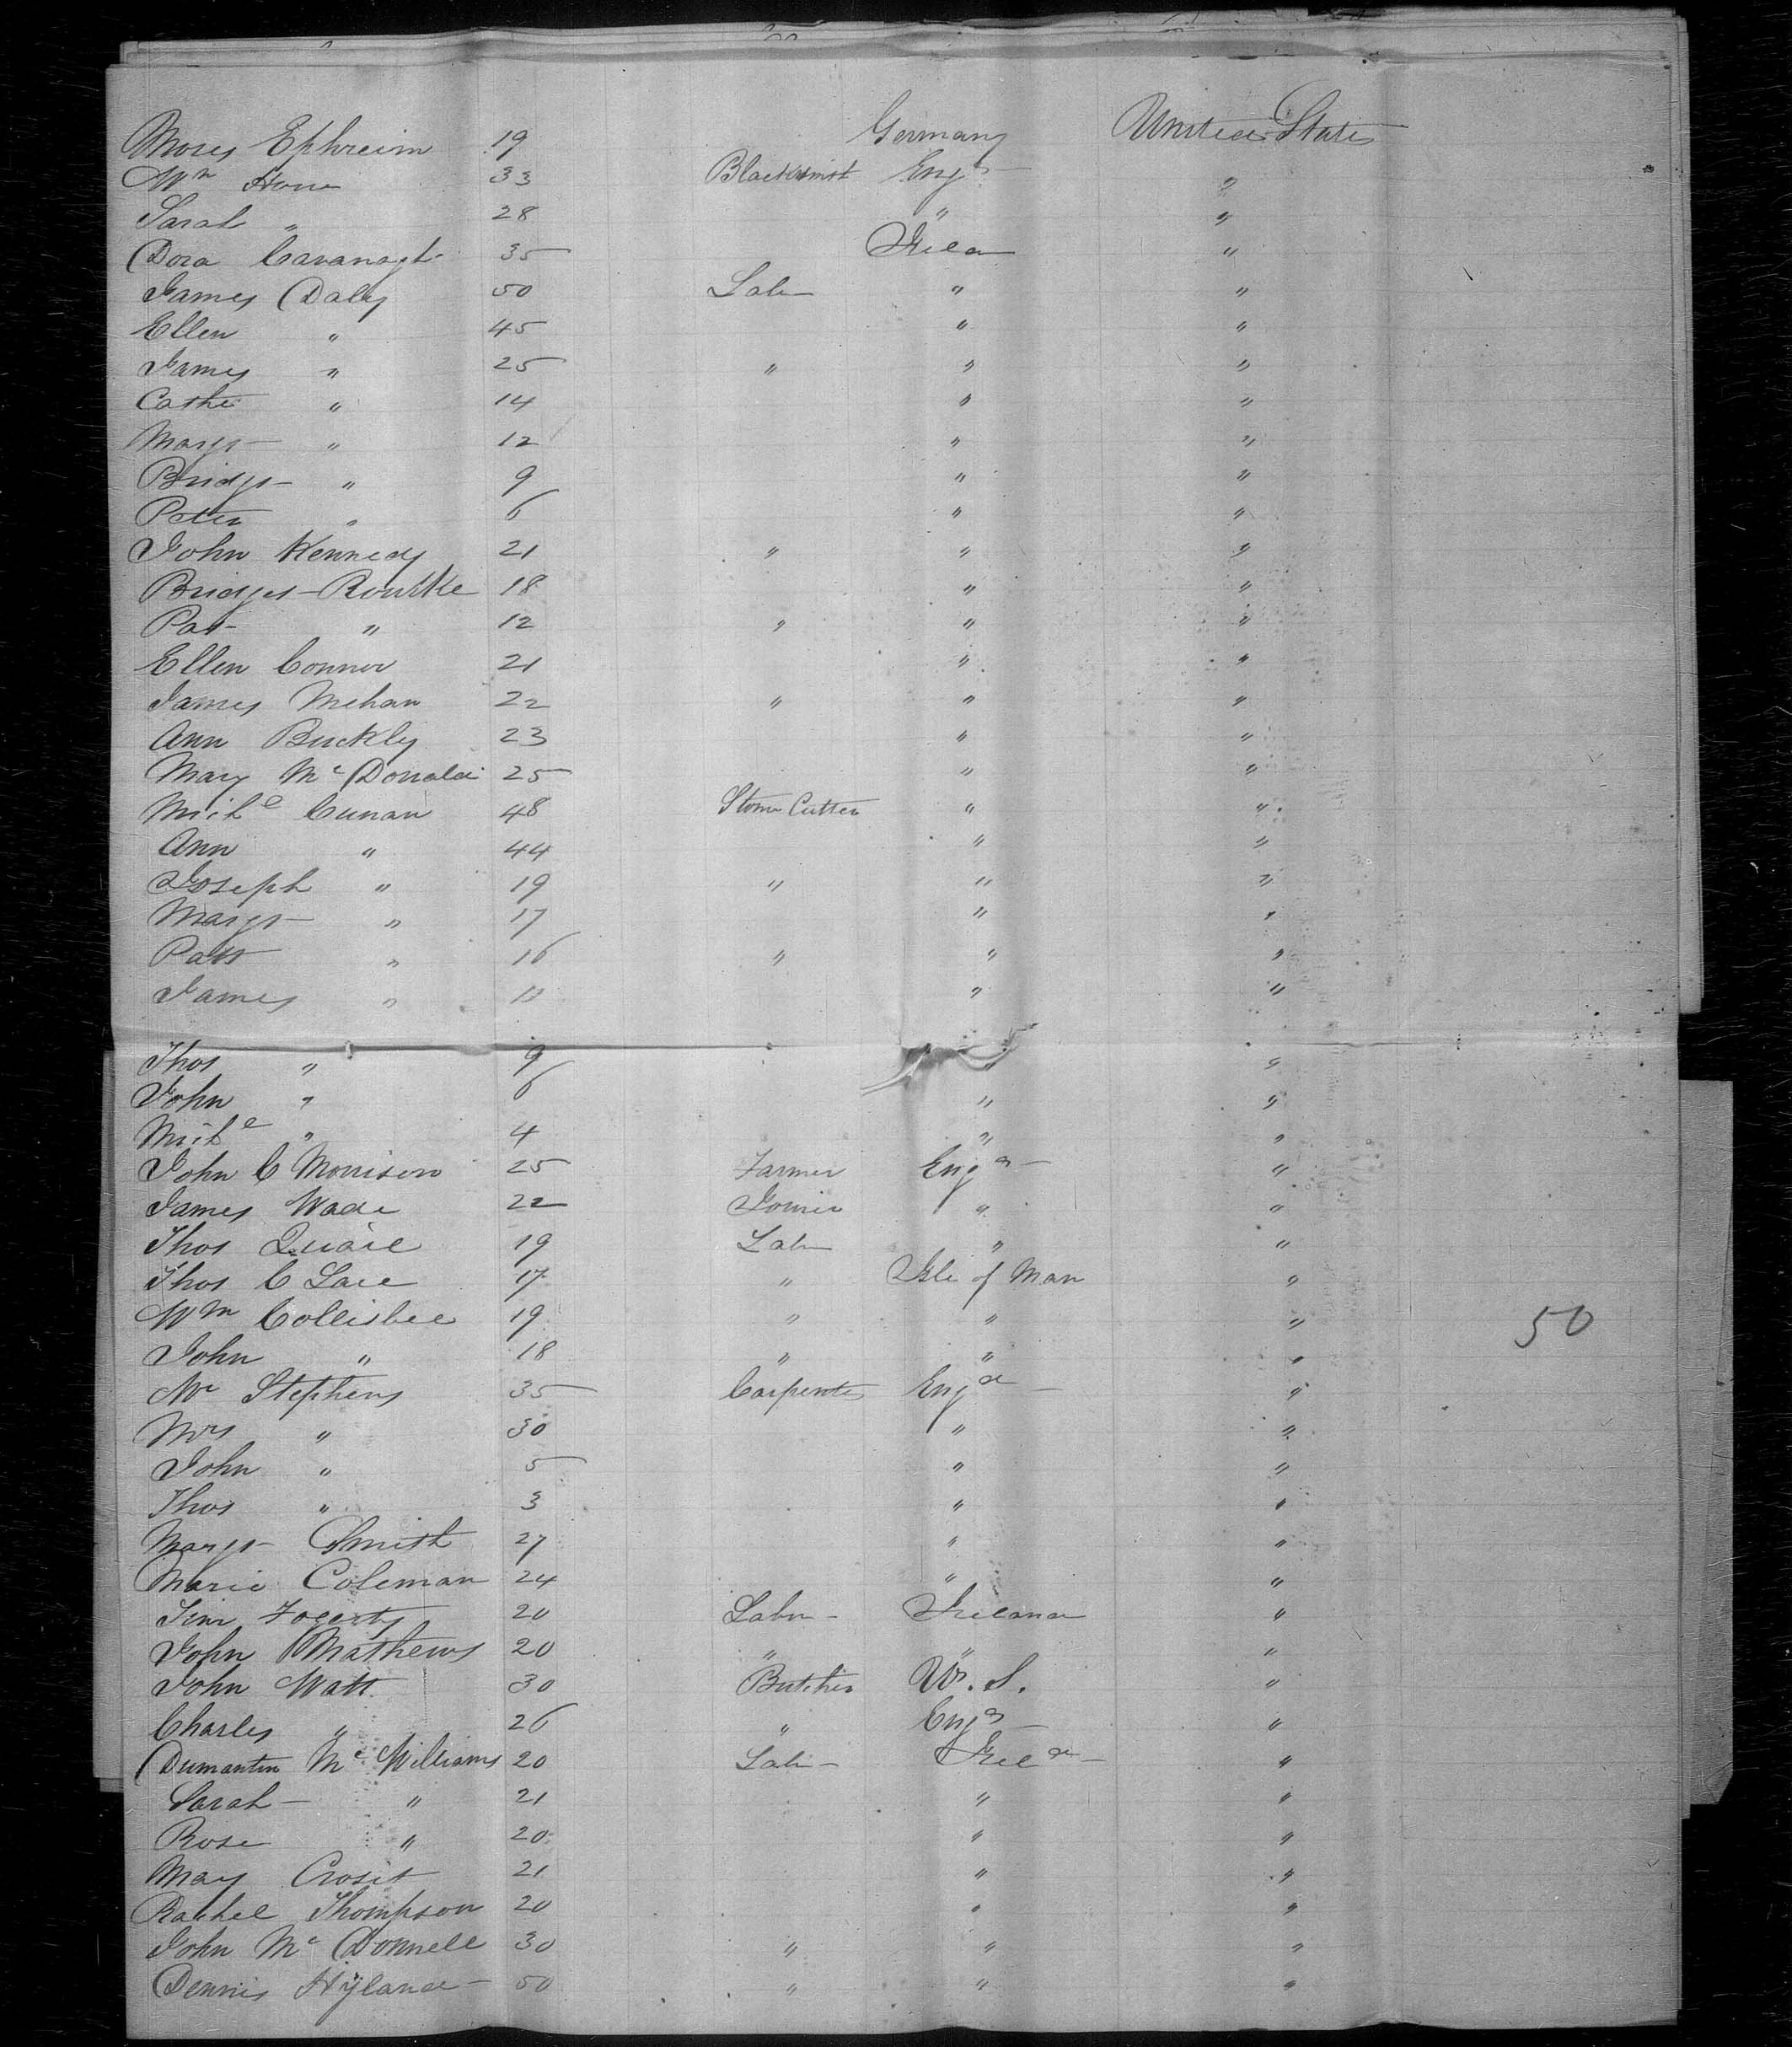 Moses Ephreim 19 Germany United States
Wm Hone 33 Blacksmit Engd
Sarah " 28 " "
Dora Cavanagh 35 Irela "
James Daly 50 Labr " "
Ellen " 45 " "
James " 25 " " "
Cathe " 14 " "
Margt " 12 " "
Bridgt " 9 " "
Peter " 6 " "
John Kennedy 21 " " "
Bridget Rourke 18 " "
Pat " 12 " " "
Ellen Conner 21 " "
James Mehan 22 " " "
Ann Buckly 23 " "
Mary McDonald 25 " "
Michl Cunan 48 Stone Cutter " "
Ann " 44 " "
Joseph " 19 " " "
Margt " 17 " "
Patt " 16 " " "
James " " "
Thos " 9 " "
John " 6 " "
Michl " 4 " "
John C Morrison 25 Farmer Engd "
James Wade 22 Joiner " "
Thos Quail 19 Labr " "
Thos C Lace 17 " Isle of Man "
Wm Collisbee 19 " " " 50
John " 18 " " "
Mr Stephens 35 Carpenter Engd "
Mrs " 30 " "
John " 5 " "
Thos " 3 " "
Margt Smith 27 " "
Marie Coleman 24 " "
Tim Fogerty 20 Labr Ireland "
John Mathews 20 " " "
John Watt 30 Butcher U. S. "
Charles " 26 " Engd "
McWilliams 20 Labr Ireld "
Sarah " 21 " "
Rose " 20 " "
Mary Crosit 21 " "
Rachel Thompson 20 " "
John McDonnell 30 " " "
Dennis Hyland 50 " " "